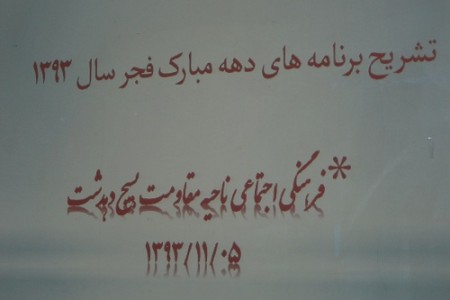 تشریح برنامه های دهه مبارک فجر سال ۱۳۹۳
*فرهنگی اجتماعی ناحیه مقاومت بسیج دهدشت
۱۳۹۳/۱۱/۰۵